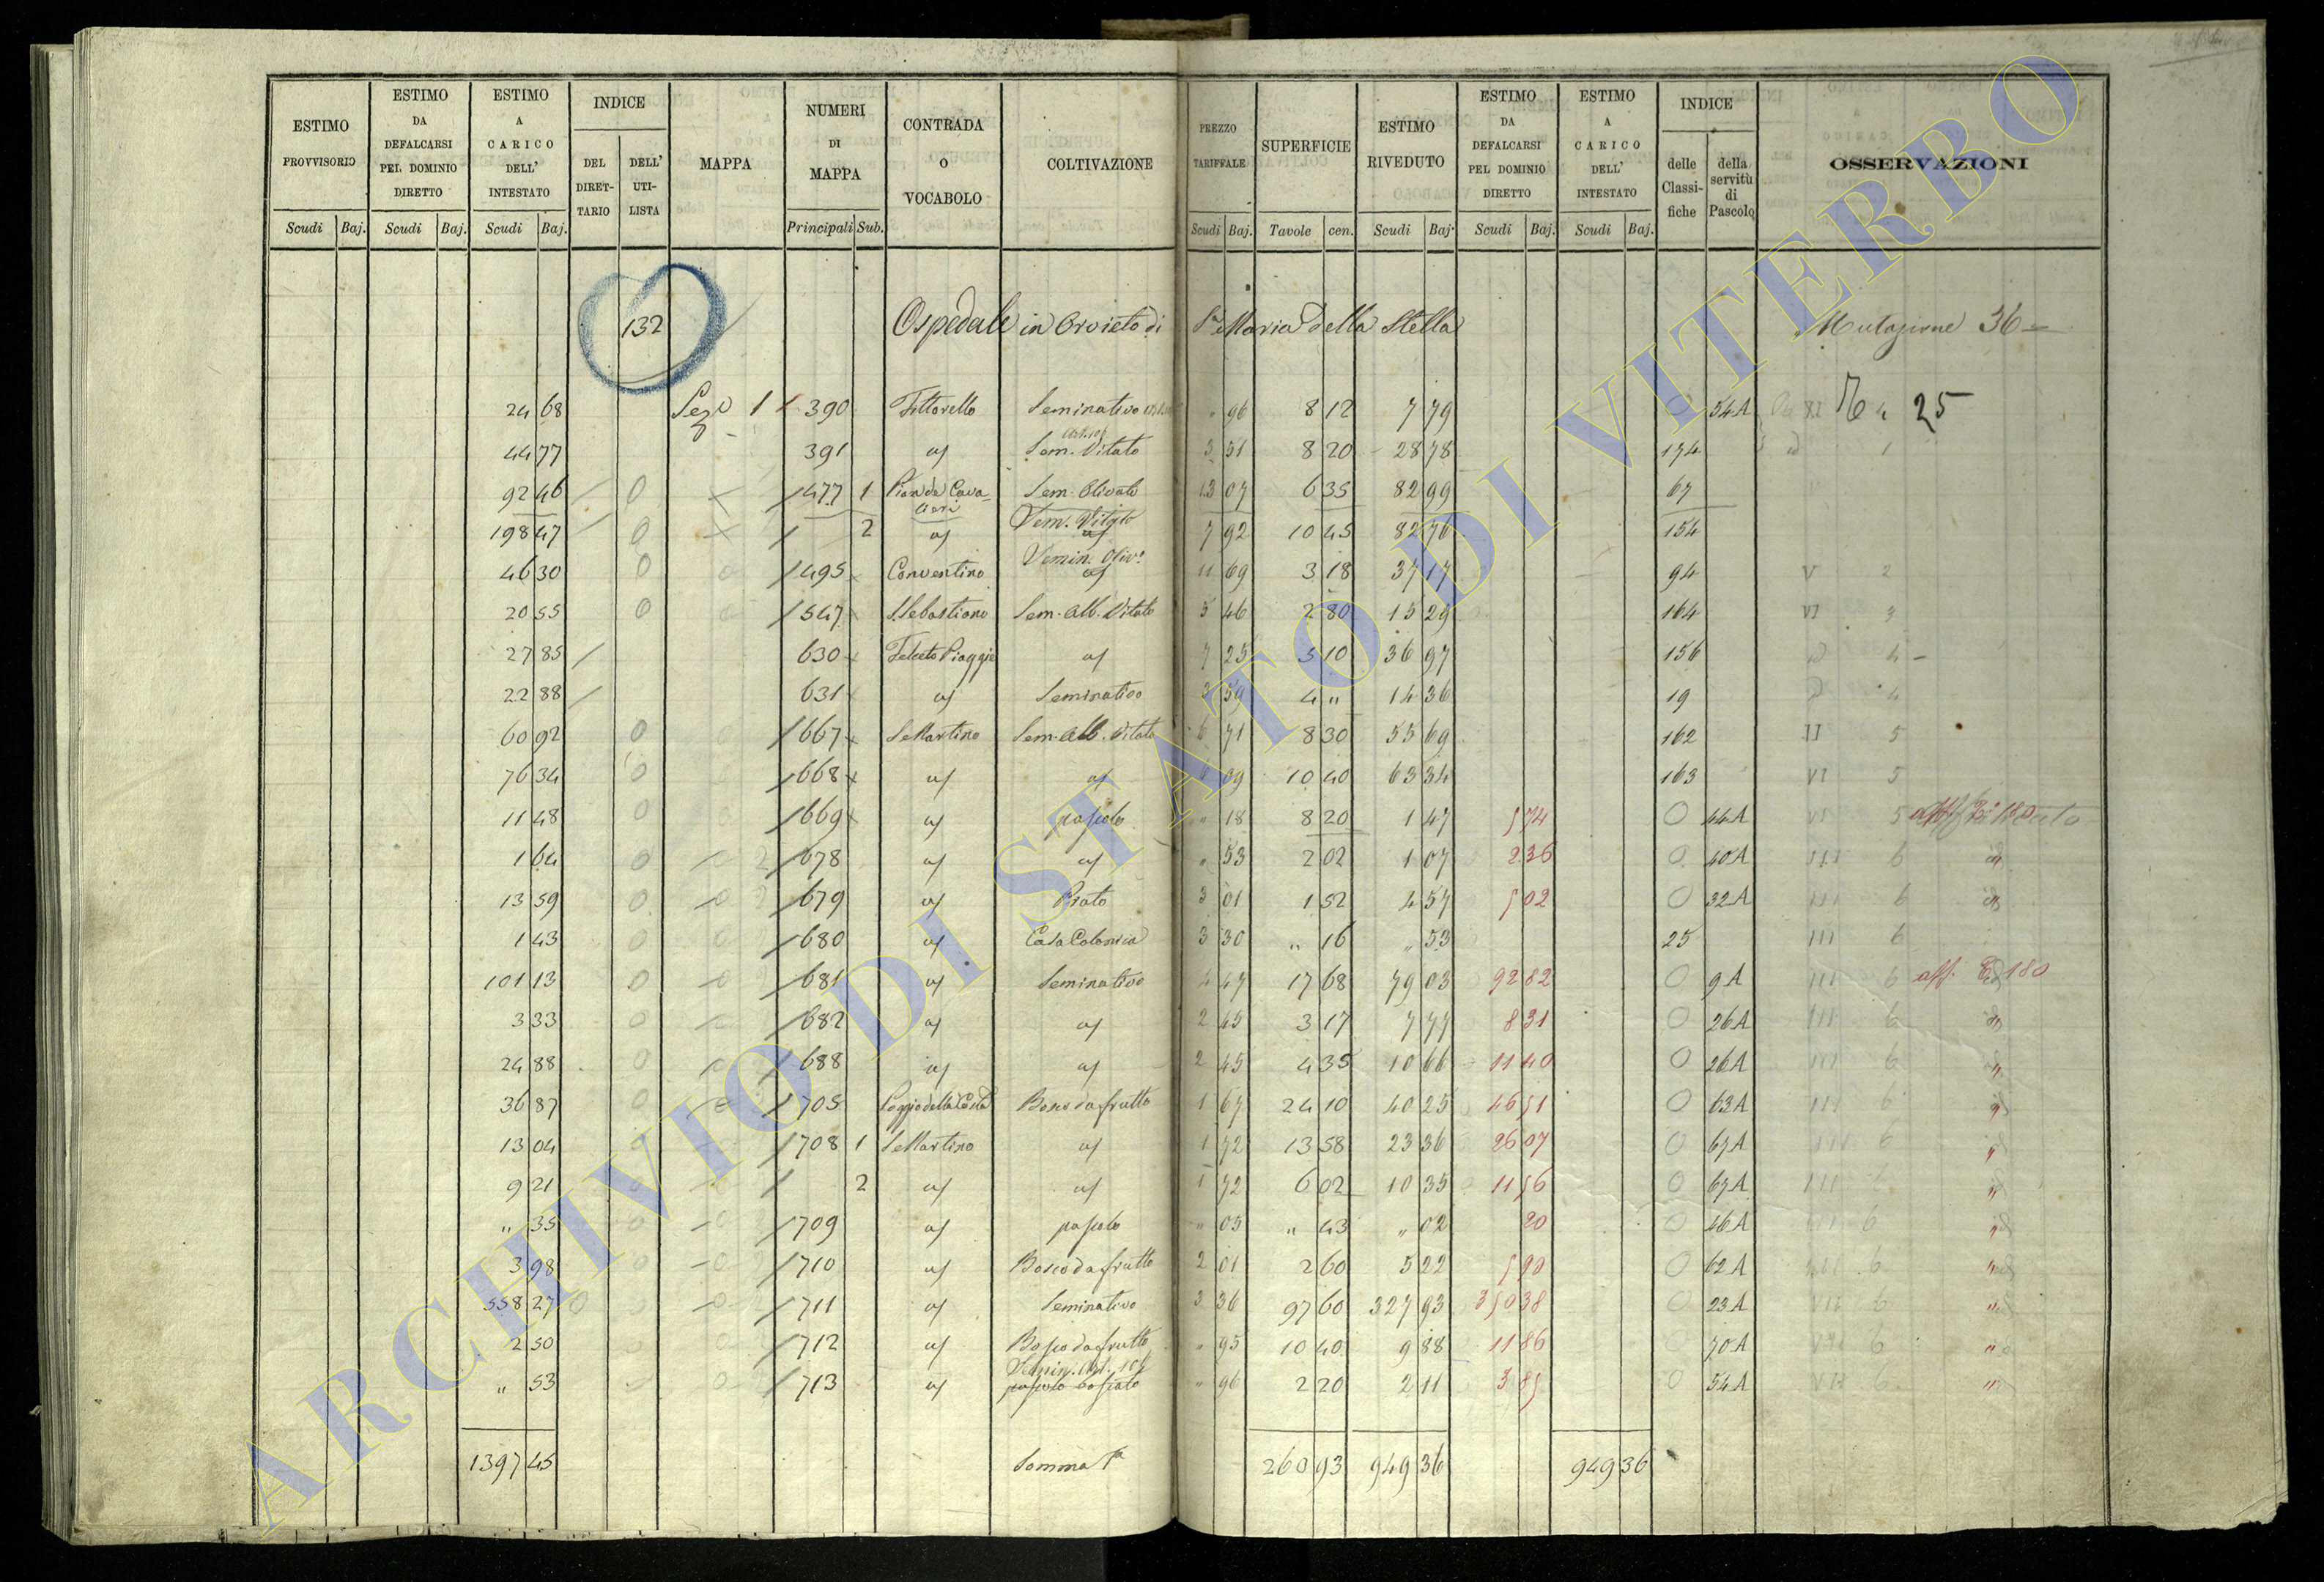 ESTIMO PROVVISORIO Scudi Baj.
ESTIMO DA DEFALCARSI PEL DOMINIO DIRETTO Scudi Baj.
ESTIMO A CARICO DELL' INTESTATO Scudi Baj.
INDICE DEL DIRET-TARIO DELL' UTI-LISTA
MAPPA
NUMERI DI MAPPA Principali Sub.
CONTRADA O VOCABOLO
COLTIVAZIONE
PREZZO TARIFFALE Scudi Baj.
SUPERFICIE Tavole cen.
ESTIMO RIVEDUTO Scudi Baj.
ESTIMO DA DEFALCARSI PEL DOMINIO DIRETTO Scudi Baj.
ESTIMO A CARICO DELL' INTESTATO Scudi Baj.
INDICE delle Classi-fiche della servitù di Pascolo
OSSERVAZIONI
132 Ospedale in Orvieto di Sa Maria della Stella Mutazione 36
24 68 Sezo 1 390 Fettorello Seminativo " 96 8 12 7 79 0 54A 25
44 77 391 Sem. Vitato 3 51 8 20 28 78 174 1
92 46 0 1477 1 Pian de Cava-lieri Sem. Olivato 13 07 6 35 82 99 67
198 47 0 2 Sem. Vitato 7 92 10 45 82 76 154
46 30 0 1495 Conventino Semin. Olivo 11 69 3 18 37 17 94 V 2
20 55 0 1547 S. Sebastiano Sem. Alb. Vitato 5 46 2 80 15 29 164 VI 3
27 85 630 Felceto Piaggie 7 25 5 10 36 97 156 4
22 88 631 Seminativo 3 59 4 " 14 36 19 4
60 92 0 1667 S. Martino Sem. Alb. Vitato 6 71 8 30 55 69 162 II 5
76 34 0 1668 6 09 10 40 63 34 163 VI 5
11 48 0 1669 pascolo " 18 8 20 1 47 5 74 0 44A VI 5
1 64 0 1678 " 53 2 02 1 07 2 36 0 40A III 6
13 59 0 1679 Prato 3 01 1 52 4 57 5 02 0 32A III 6
1 43 0 1680 Casa Colonica 3 30 " 16 " 53 25 III 6
101 13 0 1681 Seminativo 4 47 17 68 79 03 92 82 0 9A III 6 aff. 180
3 33 0 1682 2 45 3 17 7 77 8 31 0 26A III 6
24 88 0 1688 2 45 4 35 10 66 11 40 0 26A III 6
36 87 0 1705 Poggio della Costa Bosco da frutto 1 67 24 10 40 25 46 51 0 63A III 6
13 04 1708 1 S. Martino 1 72 13 58 23 36 26 07 0 67A III 6
9 21 2 1 72 6 02 10 35 11 56 0 67A III
" 35 1709 pascolo " 05 " 43 " 02 20 0 46A 6
3 98 1710 Bosco da frutto 2 01 2 60 5 22 5 90 0 62A 6
558 27 0 1711 Seminativo 3 36 97 60 327 93 350 38 0 23A 6
2 50 1712 Bosco da frutto " 95 10 40 9 88 11 86 0 70A 6
" 53 1713 pascolo boscato " 96 2 20 2 11 3 85 0 54A 6
1397 45 Somma 260 93 949 36 949 36
ARCHIVIO DI STATO DI VITERBO